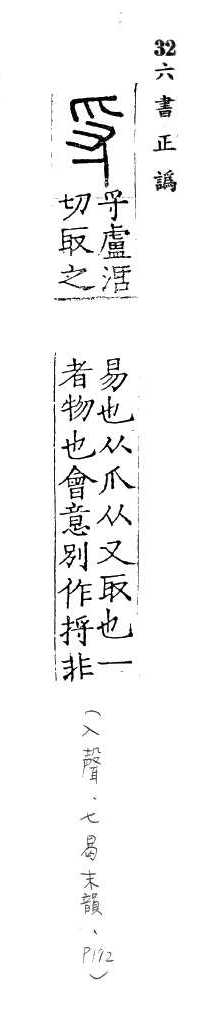 32 六書正譌
寽盧活
切取之
易也从爪从又取也一
者物也會意別作捋非
(入聲、七曷末韻、P192)